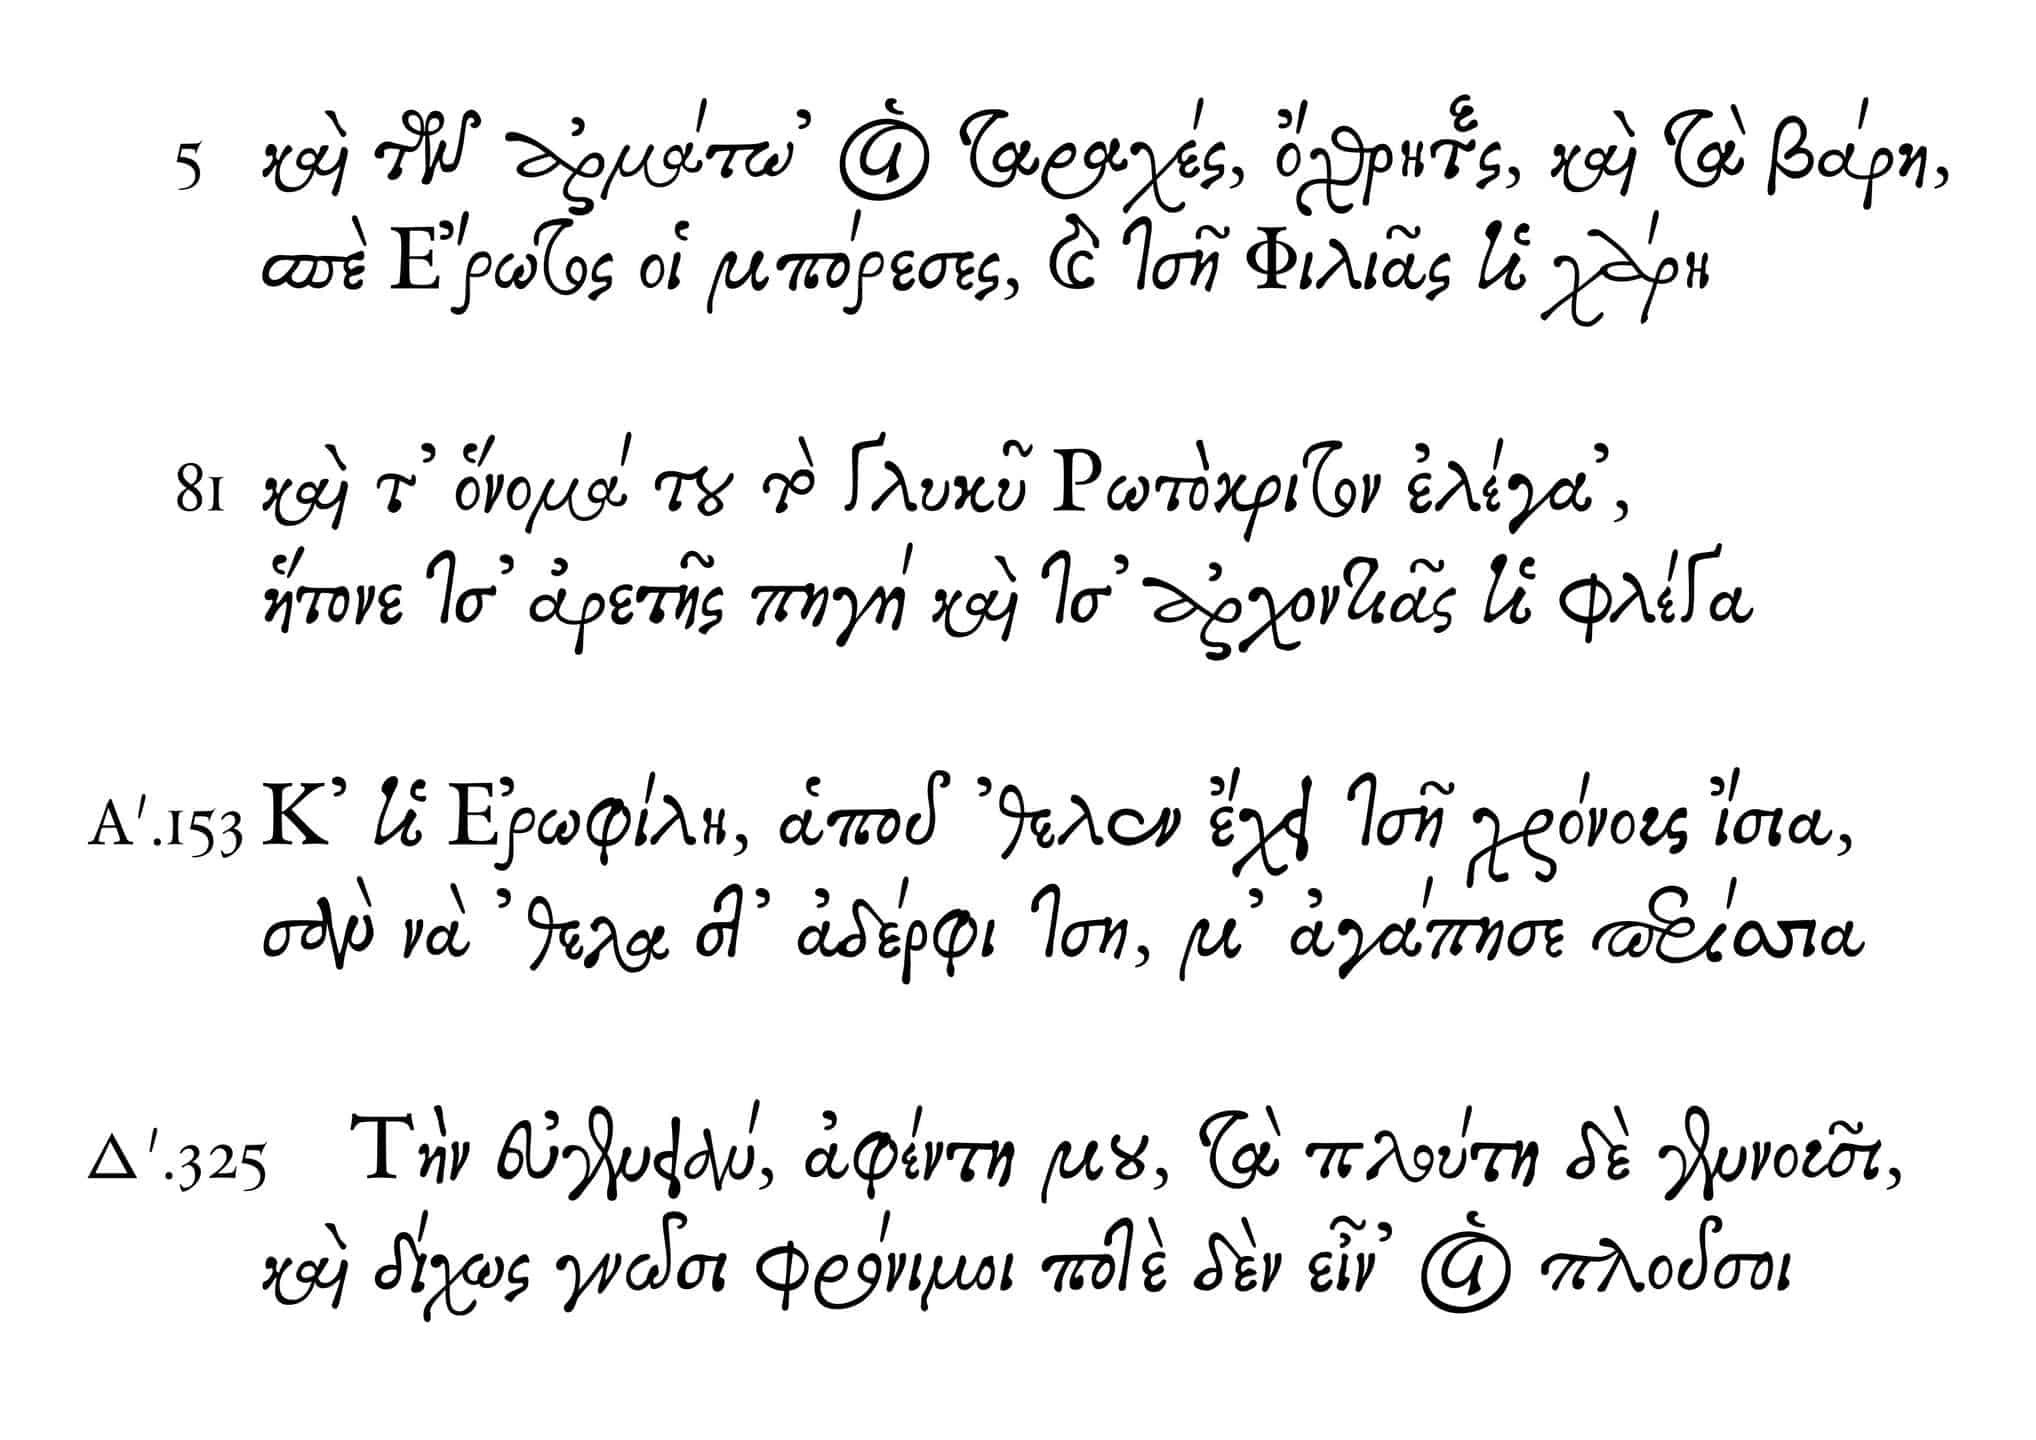 5 καὶ τῶν ἀρμάτω’ οἱ ταραχές, ὄχθρητες, καὶ τὰ βάρη,
Ἔρωτος οἱ μπόρεσες, καὶ τσῆ Φιλιᾶς ἡ χάρη
81 καὶ τ’ ὅνομά του τὸ γλυκῦ Ρωτὸκριτον ἐλέγα’,
ἥτονε τσ’ ἀρετῆς πηγή καὶ τσ’ ἀρχοντιᾶς ἡ φλέγα
Α′.153 Κ’ ἡ Ἐρωφίλη, ἁποῦ ’θελεν ἔχει τσῆ χρόνους ἴσια,
σὰν νὰ ’θελα στ’ ἀδέρφι τση, μ’ ἀγάπησε περίσσια
Δ′.325 Τὴν εὐγενειάν, ἀφέντη μου, τὰ πλούτη δὲ γεννοῦσι,
καὶ δίχως γνῶσι φρόνιμοι ποτὲ δὲν εἶν’ οἱ πλοῦσοι